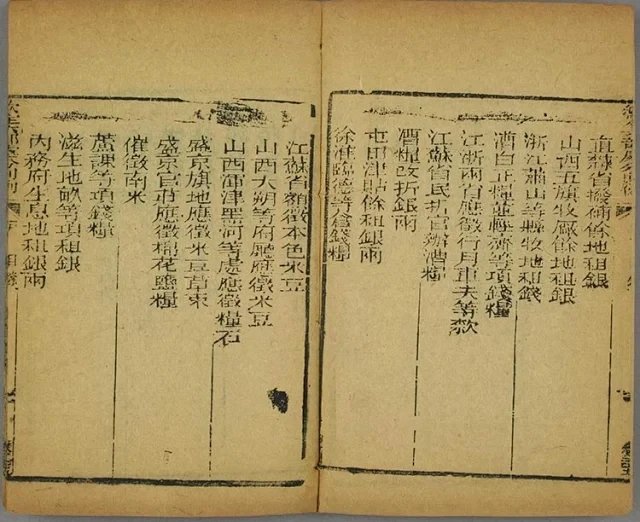 直隸省撥補餘地租銀
山西五旗牧廠餘地租銀
浙江蕭山等縣牧地租錢
漕白正糧並輕齎等項錢糧
江浙兩省應徵行月車夫等款
江蘇省民折官辦漕糧
漕糧改折銀兩
屯田津貼餘租銀兩
徐淮臨德等倉錢糧
江蘇省額徵本色米豆
山西大朔等府廳應徵米豆
山西渾津黑河等處應徵糧石
盛京旗地應徵米豆草束
盛京官莊應徵棉花鹽糧
催徵南米
蘆課等項錢糧
滋生地畝等項租銀
內務府生息地租銀兩